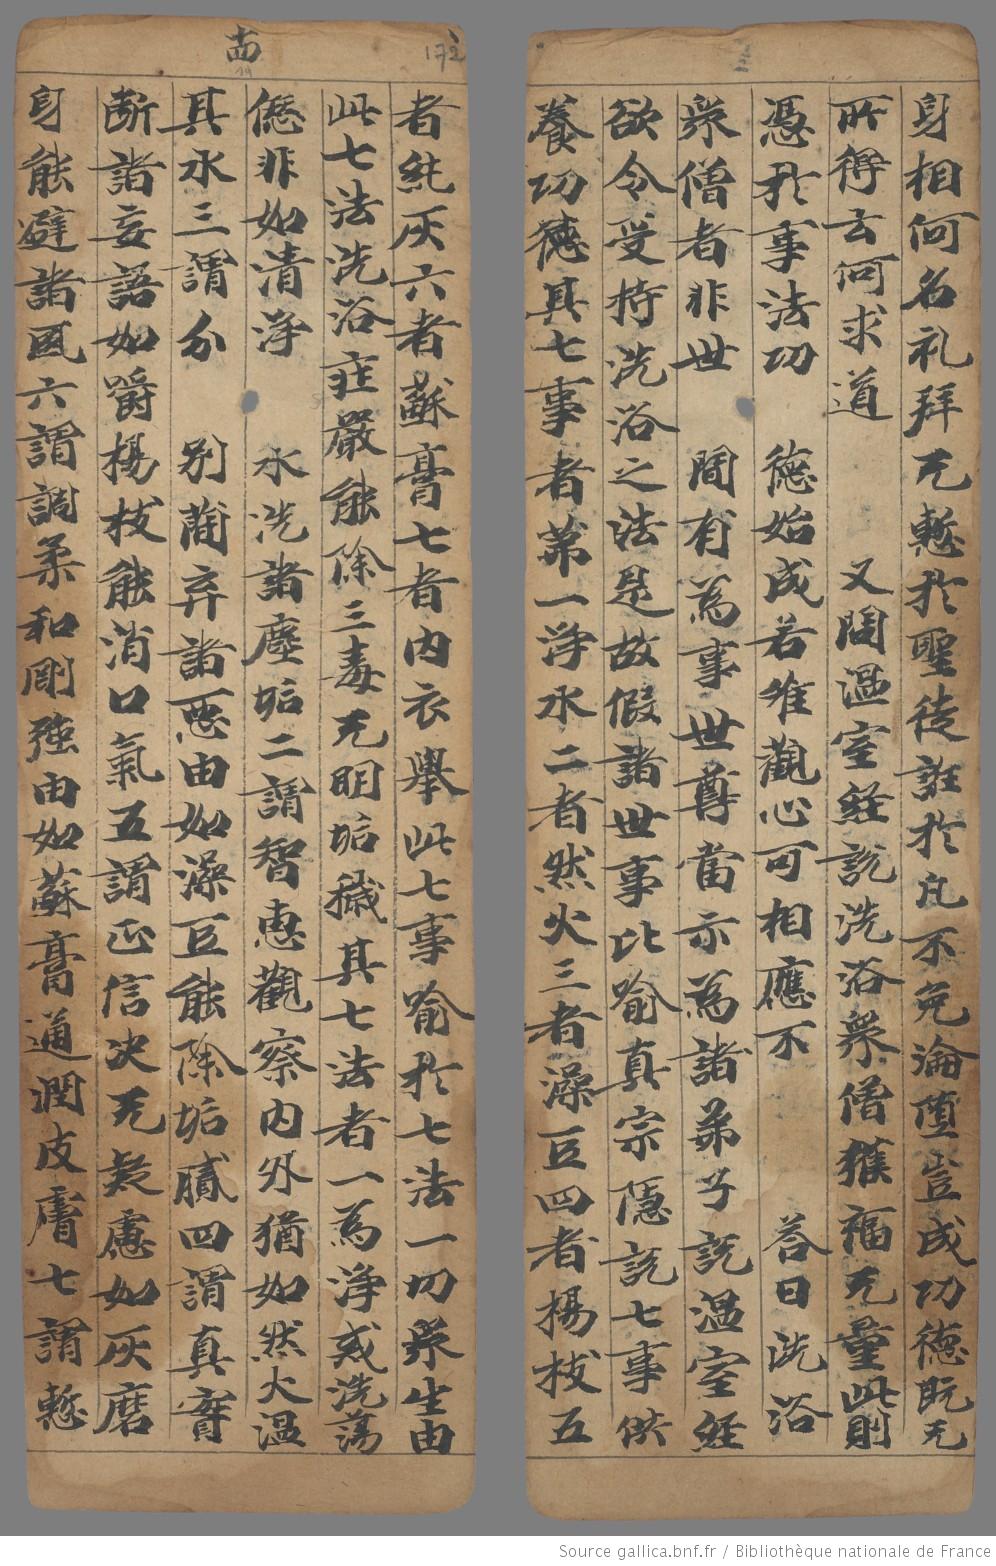 身相何名礼拜无慙於聖徒誑於凡不免淪墮豈成功德既无
所得云何求道 又問温室経説洗浴衆僧獲福无量此則
憑於事法功 德始成若唯觀心可相應不 荅曰洗浴
衆僧者非世 間有為事世尊當尒為諸弟子説温室経
欲令受持洗浴之法是故假諸世事比喻真宗隱説七事供
養功德其七事者苐一淨水二者然火三者澡豆四者楊枝五
𠽶
172
者純灰六者蘇膏七者内衣舉此七事喻於七法一切衆生由
此七法洗浴莊嚴能除三毒无明垢穢其七法者一為淨戒洗蕩
僁非如清淨 水洗諸塵垢二謂智惠觀察内外猶如然火温
其水三謂分 别蕳弃諸悪由如澡豆能除垢膩四謂真實
断諸妄語如嚼楊枝能消口氣五謂正信决无疑慮如灰磨
身能避諸風六謂調柔和剛強由如蘇膏通潤皮膚七謂慙
Source gallica.bnf.fr / Bibliothèque nationale de France